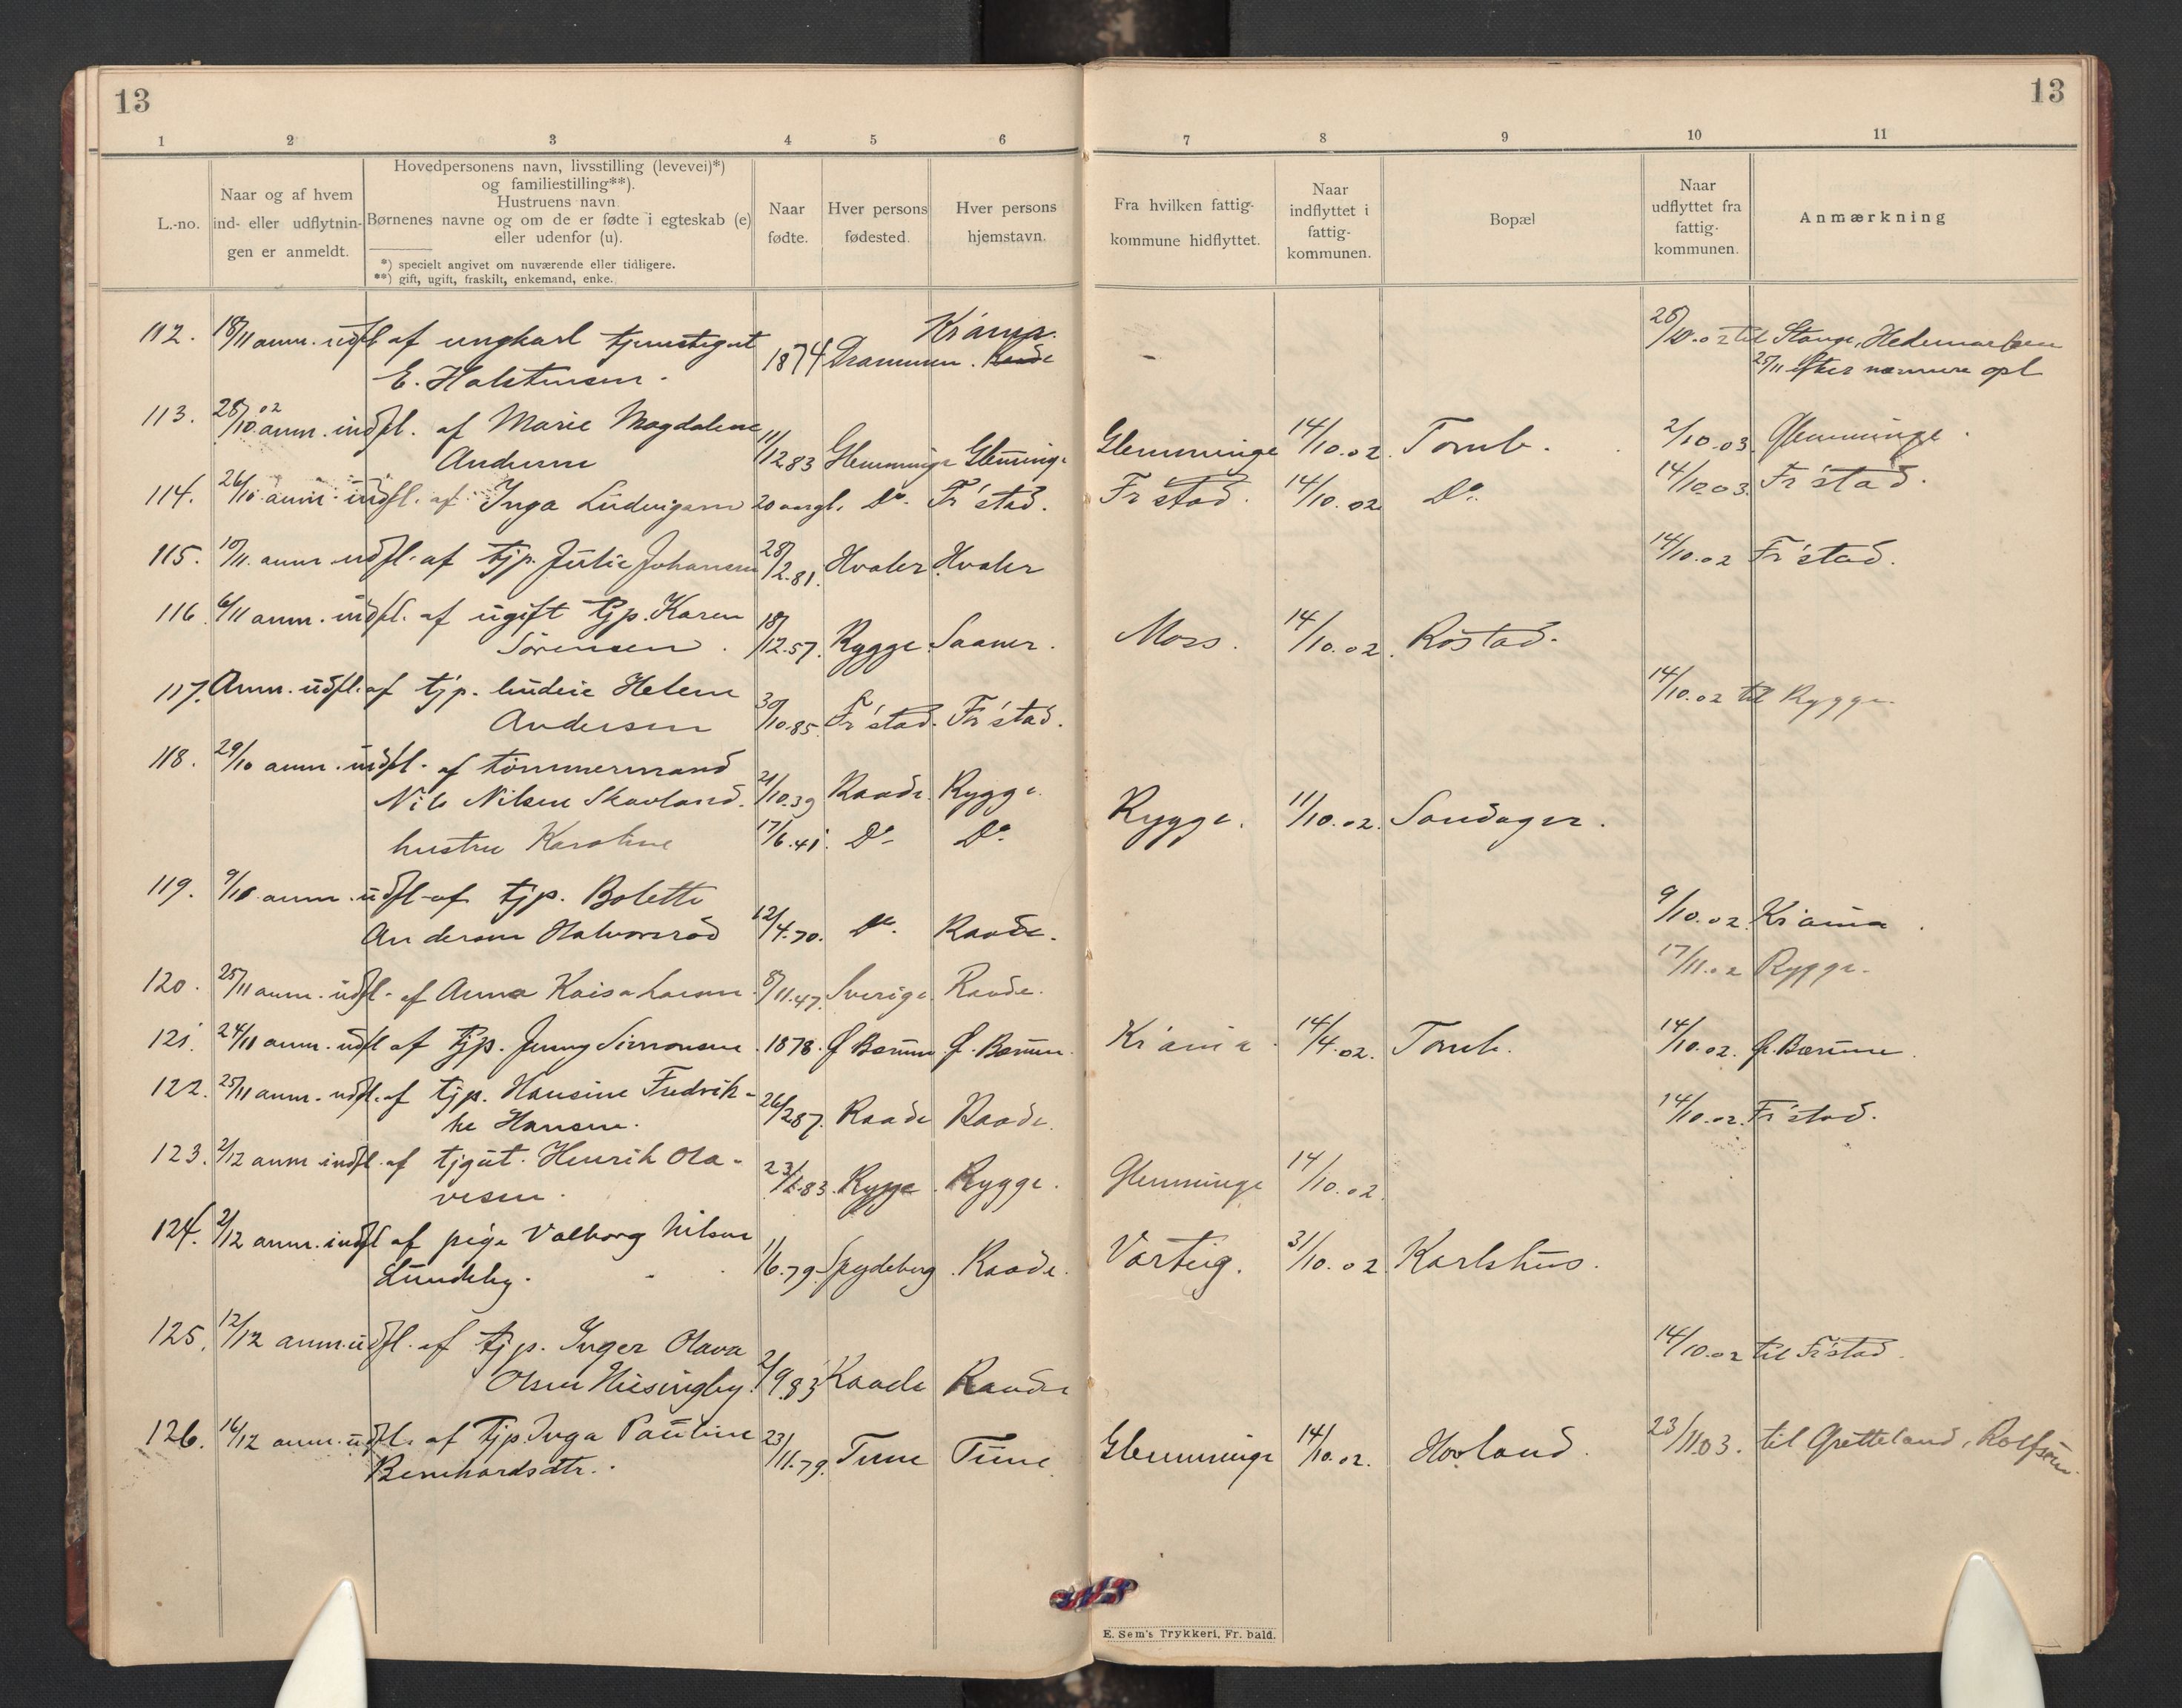 13
13
1 2 3 4 5 6 7 8 9 10 11
L.-no.
Naar og af hvem
ind- eller udflytnin-
gen er anmeldt.
Hovedpersonens navn, livsstilling (levevei)*)
og familiestilling**).
Hustruens navn.
Børnenes navne og om de er fødte i egteskab (e)
eller udenfor (u).
*) specielt angivet om nuværende eller tidligere.
**) gift, ugift, fraskilt, enkemand, enke.
Naar
fødte.
Hver persons
fødested.
Hver persons
hjemstavn.
Fra hvilken fattig-
kommune hidflyttet.
Naar
indflyttet i
fattig-
kommunen.
Bopæl
Naar
udflyttet fra
fattig-
kommunen.
Anmærkning
112. 18/11 anm. udfl af ungkarl tjenstegut Kr'ania. 28/10.02 til Stange, Hedemarken
E. Halstensen. 1874 Drammen. Raade 25/11 efter nærmere opl
113. 28/10 02 anm. indfl. af Marie Magdalene
Andersen 11/12 83 Glemminge Glemminge Glemminge 14/10.02. Tomb. 2/10.03. Glemminge.
114. 26/10 anm. indfl. af Inga Ludvigsen 20 aargl. Do. Fr'stad. Fr'stad. 14/10.02 Do. 14/10.03. Fr'stad.
115. 10/11. anm. udfl. af tjp. Julie Johansen 28/2.81. Hvaler Hvaler 14/10.02 Fr'stad.
116. 6/11 anm. indfl. af ugift tjp. Karen
Sørensen. 18/12.57. Rygge. Saaner. Moss. 14/10.02. Rostad.
117. Anm. udfl. af tjp. Helene 14/10.02 til Rygge.
Andersen 30/10.85. Fr'stad. Fr'stad.
118. 29/10 anm. indfl. af tømmermand
Nils Nilsen Skovland. 21/10.39 Raade. Rygge. Rygge. 11/10.02. Sandager.
hustru Karoline 17/6.41. Do. Do.
119. 9/10 anm. udfl. af tjp. Bolette 9/10.02. Kr'ania.
Andersen Halvorsrød 12/4.70. Do. Raade.
120. 25/11 anm. udfl. af Anna Kaisa Larsen. 8/11.47. Sverige. Raade. 17/11.02 Rygge.
121. 24/11 anm. udfl af tjp. Jenny Simonsen. 1878. Ø Bærum Ø. Bærum. Kr'ania. 14/4.02. Tomb. 14/10.02. Ø. Bærum.
122. 25/11 anm. udfl. af tjp. Hansine Fredrik-
ke Hansen. 26/2 87. Raade Raade. 14/10.02. Fr'stad.
123. 2/12 anm indfl. af tjgut. Henrik Ola-
vesen. 83. Rygge. Rygge. Glemminge 14/10.02.
124. 2/12 anm. indfl af pige Valborg Nilsen
Lundeby. 1/6.79. Spydeberg. Raade. Varteig. 31/10.02 Karlshus.
125. 12/12 anm. udfl. af tjp. Inger Olava 14/10.02 til Fr'stad.
Olsen Huseingby. 2/9.83 Raade Raade
126. 16/12 anm. udfl. af tjp. Inga Pauline
Bernhardsdtr. 23/11.79. Tune Tune Glemminge 14/10.02. Hovland. 23/11.03. til Gretteland, Rolfsøen
E. Sem's Trykkeri, Fr. hald.